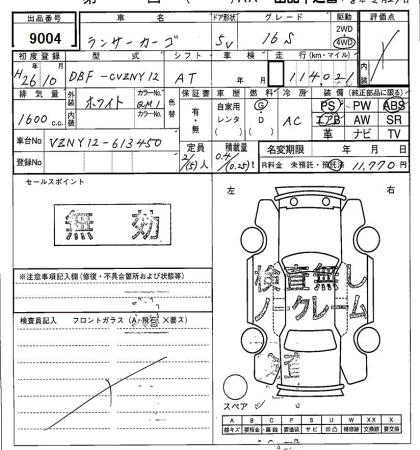 出品番号 車名 ドア形状 グレード 駆動 評価点
9004 ランサーカーゴ 5V 16S 2WD 4WD
初度登録 型式 シフト 車検 走行(km・マイル)
H26年10月 DBF-CVZNY12 AT 年 月
排気量 外装 カラーNo. 色替 保証書 車歴 燃料 冷房 装備(純正部品に限る)
1600c.c. ホワイト QM1 有・無 自家用 レンタ G D AC PS PW ABS
内装 カラーNo. エアB AW SR
革 ナビ TV
車台No VZNY12-613450 定員 積載量 名変期限 年 月 日
登録No 2/(5)人 0.4/(0.25)t R料金 未預託・預託 11,770円
セールスポイント
無効
左 右
※注意事項記入欄(修復・不具合箇所および状態等)
検査員記入 フロントガラス(A・飛石 X要ス)
検査無し
ノークレーム
スペア
A B C P S U W X XX
線キズ 要板金 腐蝕 要塗装 サビ 凹凸 補修跡 交換跡 要交換